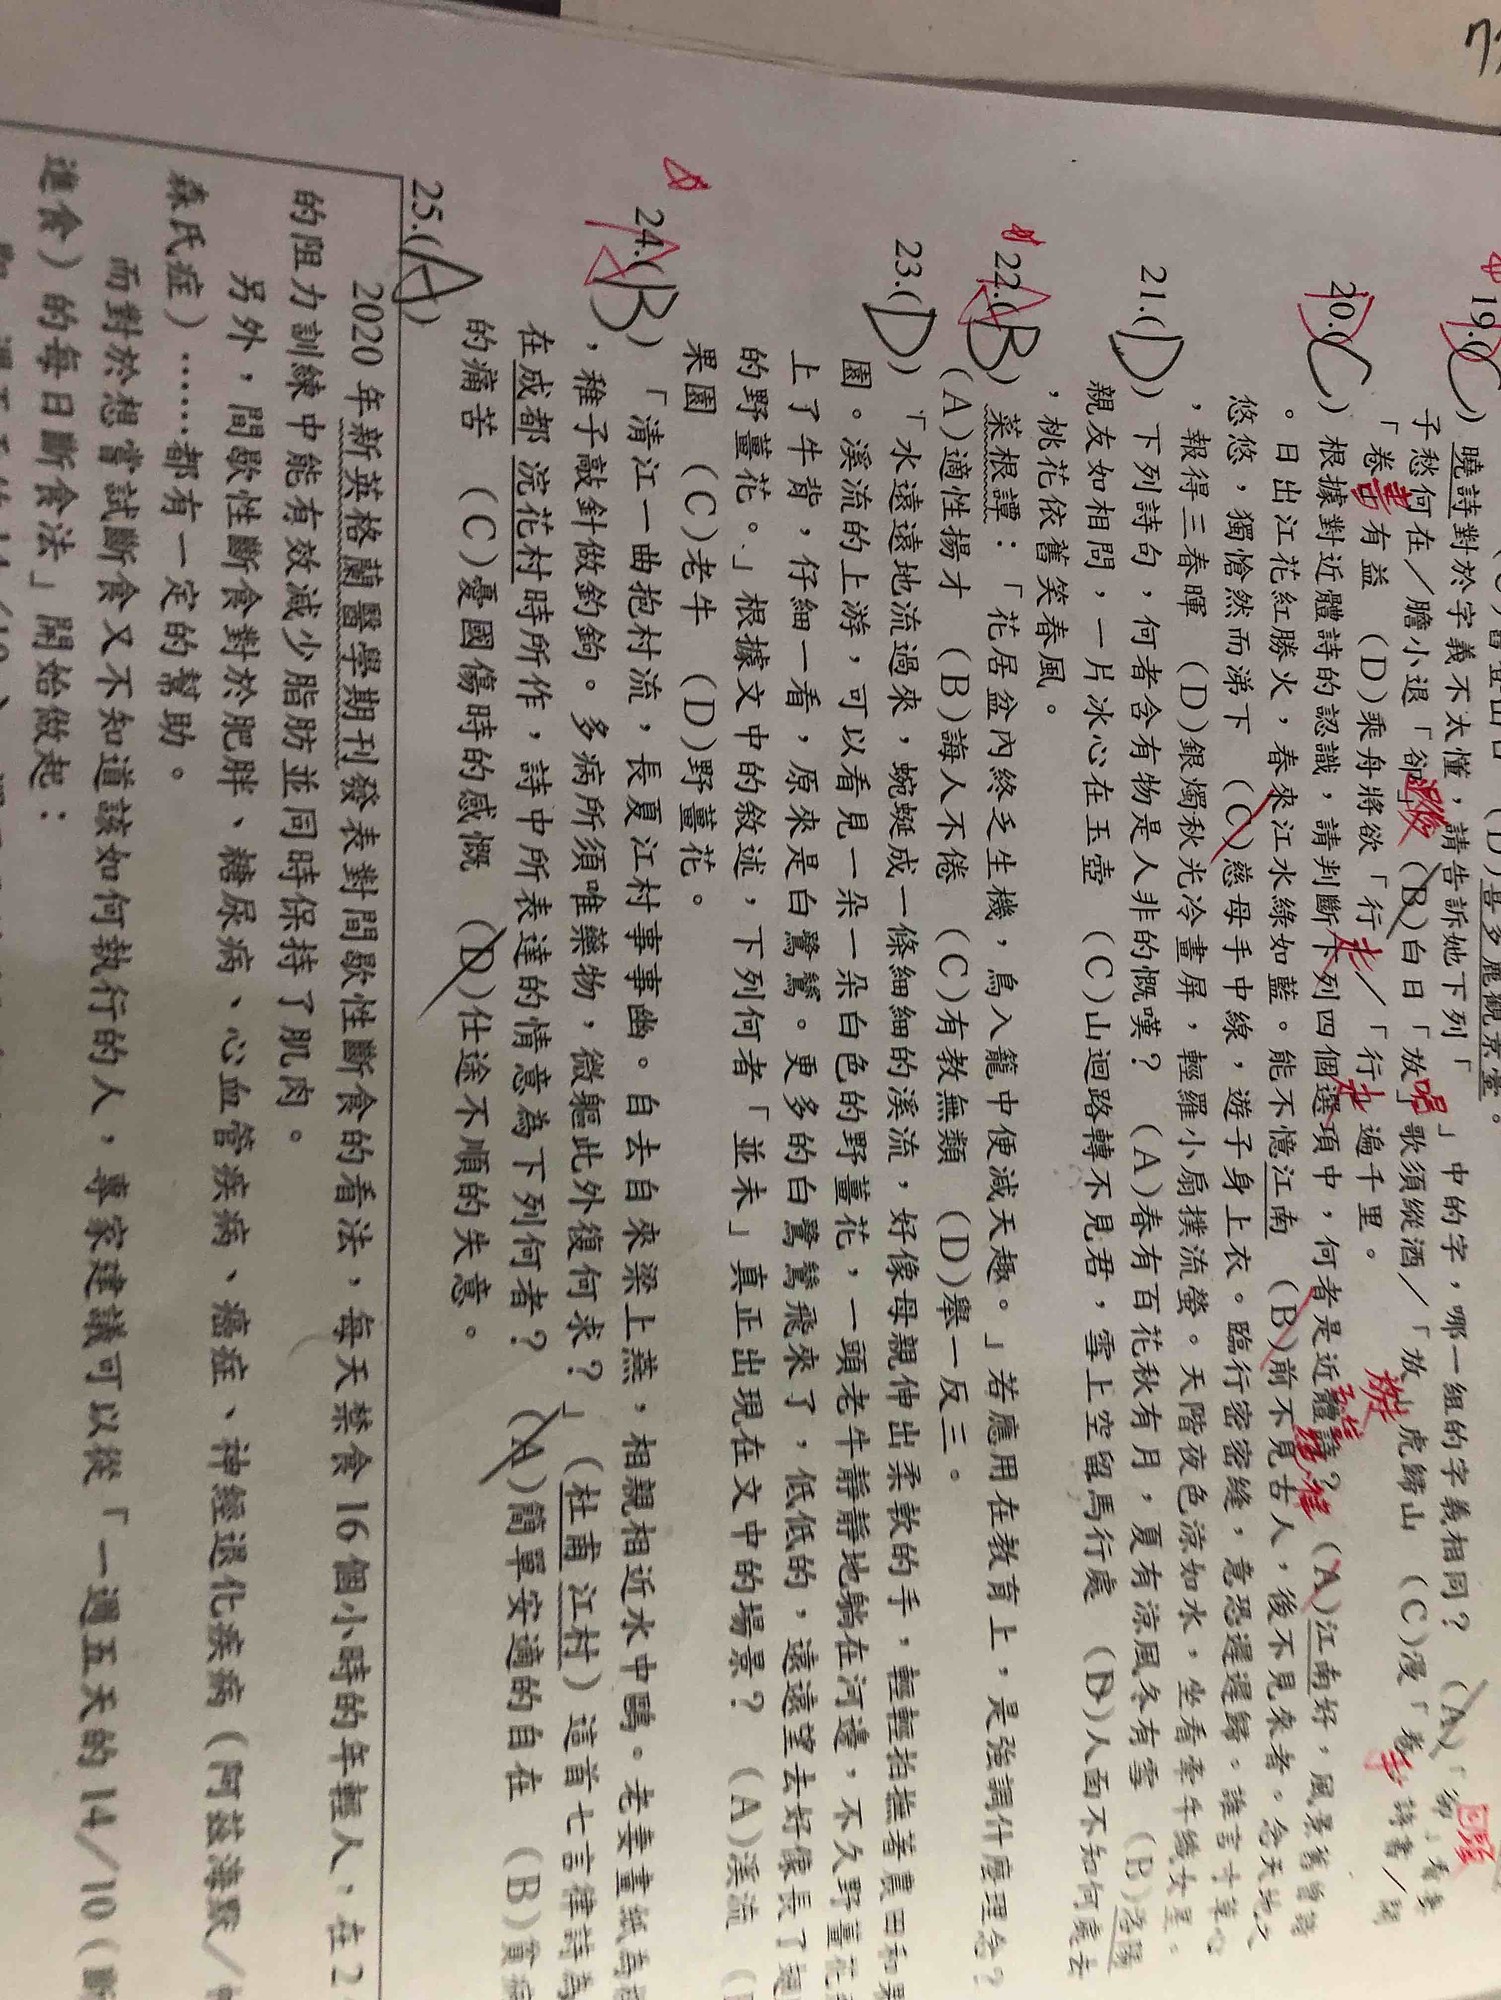 19.(C) 曉詩對於字義不太懂，請告訴她下列「　」中的字，哪一組的字義相同？ (A)「卻」看妻
子愁何在／膽小退「卻」 (B)白日「放」歌須縱酒／「放」虎歸山 (C)漫「卷」詩書／開
「卷」有益 (D)乘舟將欲「行」／「行」遍千里。
20.(C) 根據對近體詩的認識，請判斷下列四個選項中，何者是近體詩？ (A)江南好，風景舊曾諳
。日出江花紅勝火，春來江水綠如藍。能不憶江南 (B)前不見古人，後不見來者。念天地之
悠悠，獨愴然而涕下 (C)慈母手中線，遊子身上衣。臨行密密縫，意恐遲遲歸。誰言寸草心
，報得三春暉 (D)銀燭秋光冷畫屏，輕羅小扇撲流螢。天階夜色涼如水，坐看牽牛織女星。
21.(D) 下列詩句，何者含有物是人非的慨嘆？ (A)春有百花秋有月，夏有涼風冬有雪 (B)洛陽
親友如相問，一片冰心在玉壺 (C)山迴路轉不見君，雪上空留馬行處 (D)人面不知何處去
，桃花依舊笑春風。
22.(B) 菜根譚：「花居盆內終乏生機，鳥入籠中便減天趣。」若應用在教育上，是強調什麼理念？
(A)適性揚才 (B)誨人不倦 (C)有教無類 (D)舉一反三。
23.(D) 「水遠遠地流過來，蜿蜒成一條細細的溪流，好像母親伸出柔軟的手，輕輕拍撫著農田和果
園。溪流的上游，可以看見一朵一朵白色的野薑花，一頭老牛靜靜地躺在河邊，不久野薑花
上了牛背，仔細一看，原來是白鷺鷥。更多的白鷺鷥飛來了，低低的，遠遠望去好像長了翅
的野薑花。」根據文中的敘述，下列何者「並未」真正出現在文中的場景？ (A)溪流
果園 (C)老牛 (D)野薑花。
24.(B) 「清江一曲抱村流，長夏江村事事幽。自去自來梁上燕，相親相近水中鷗。老妻畫紙為
，稚子敲針做釣鉤。多病所須唯藥物，微軀此外復何求？」（杜甫 江村）這首七言律詩為
在成都 浣花村時所作，詩中所表達的情意為下列何者？ (A)簡單安適的自在 (B)貧病
的痛苦 (C)憂國傷時的感慨 (D)仕途不順的失意。
25.(A)
2020 年新英格蘭醫學期刊發表對間歇性斷食的看法，每天禁食 16 個小時的年輕人，在 2
的阻力訓練中能有效減少脂肪並同時保持了肌肉。
另外，間歇性斷食對於肥胖、糖尿病、心血管疾病、癌症、神經退化疾病（阿茲海默／帕
森氏症）……都有一定的幫助。
而對於想嘗試斷食又不知道該如何執行的人，專家建議可以從「一週五天的 14／10（斷
進食）的每日斷食法」開始做起：